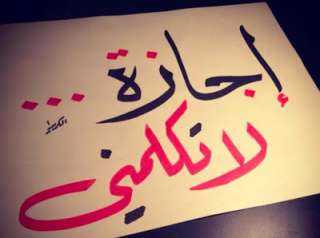 إجازة ...
لا تكلمني